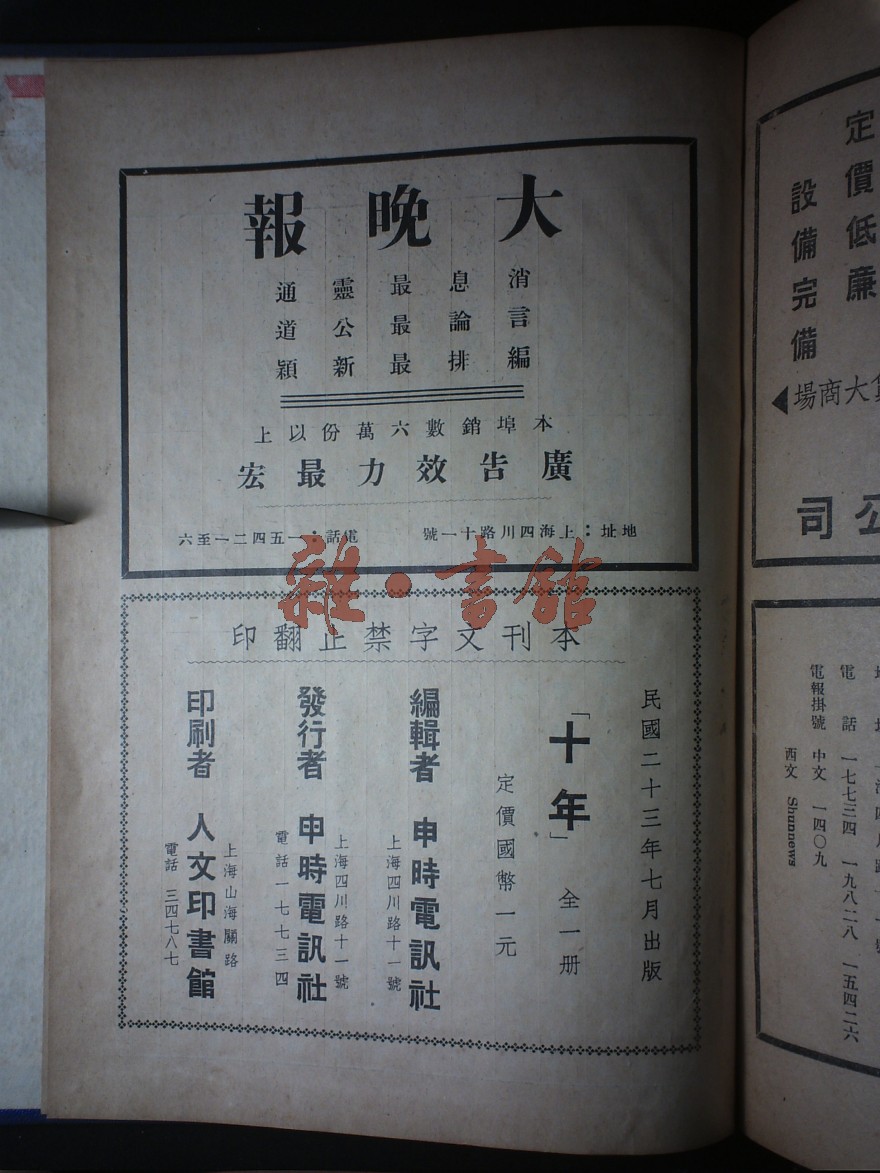 大晚報
消息最靈通
言論最公道
編排最新穎
本埠銷數六萬份以上
廣告效力最宏
地址：上海四川路十一號
電話：一五四二一至六
雜·書館
本刊文字禁止翻印
民國二十三年七月出版
「十年」 全一册
定價國幣一元
編輯者 申時電訊社
上海四川路十一號
發行者 申時電訊社
上海四川路十一號
電話一七七三四
印刷者 人文印書館
上海山海關路
電話 三四七八七
定價低廉
設備完備
大商場
公司
電話 一七七三四 一九八二八 一五四二六
電報掛號 中文 一四〇九
西文 Shunnews